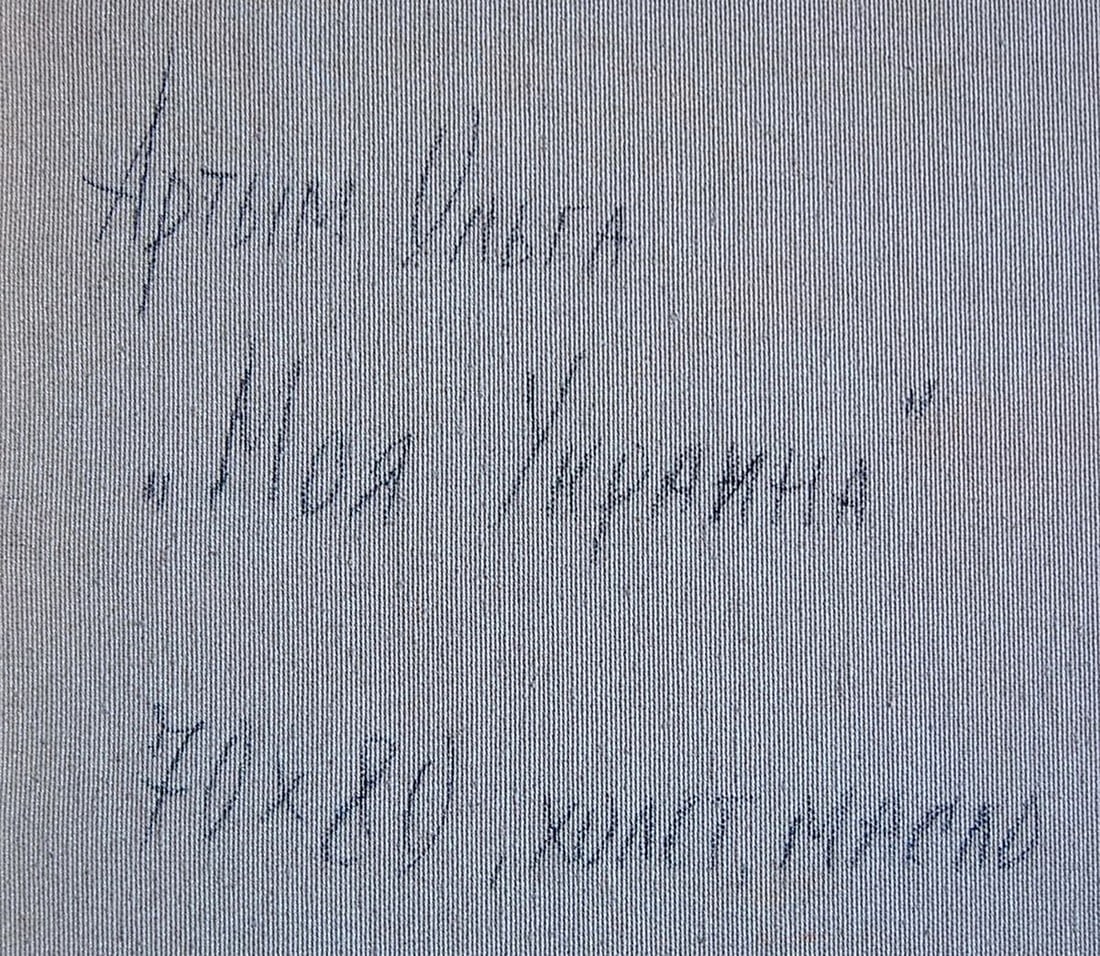 Артым Ольга
„Моя Украина"
70х80, холст, масло